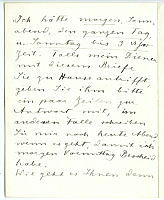 Ich hätte morgen, Sonn
abend, den ganzen Tag
u. Sonntag bis 3 Uhr
Zeit. Falls mein Diener
mit diesem Briefe
Sie zu Hause antrifft,
geben Sie ihm bitte
ein paar Zeilen zur
Antwort mit, im
anderen Falle schreiben
Sie mir noch heute Abend
wenn es geht, damit ich
morgen Vormittag Bescheid
habe.
Wie geht es Ihnen denn